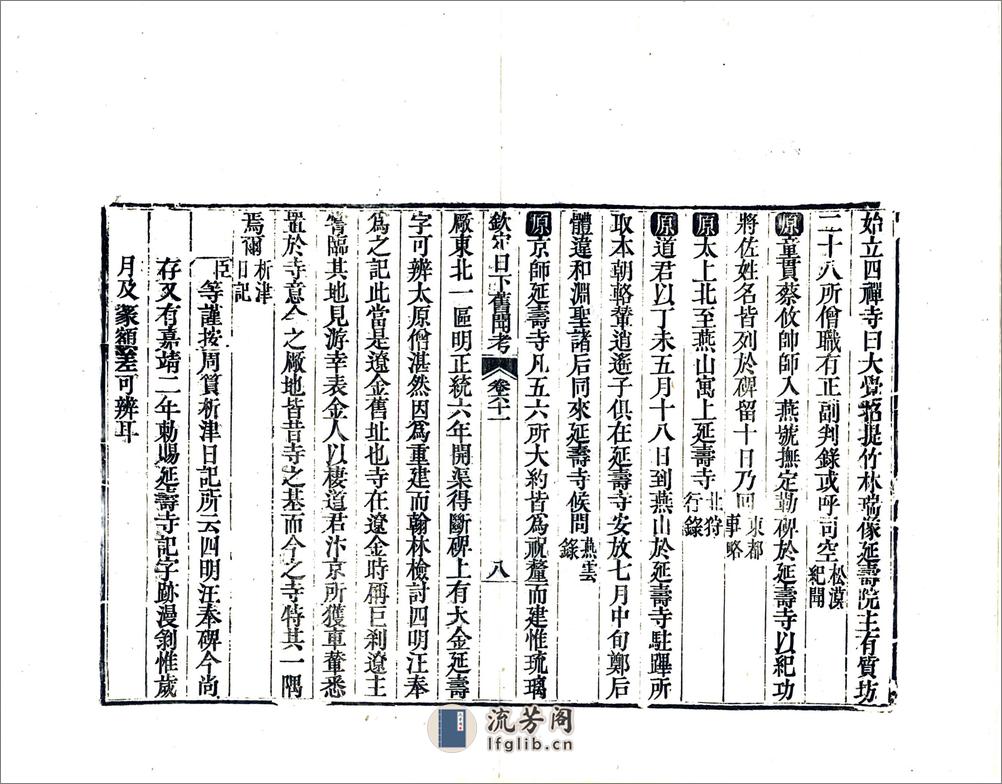 始立四禪寺曰大覺招提竹林瑞像延壽院主有質坊
二十八所僧職有正副判錄或呼司空松漠紀聞
原童貫蔡攸帥師入燕號撫定勒碑於延壽寺以紀功
將佐姓名皆列於碑留十日乃回東都事略
原太上北至燕山寓上延壽寺北狩行錄
原道君以丁未五月十八日到燕山於延壽寺駐蹕所
取本朝輅輦逍遙子俱在延壽寺安放七月中旬鄭后
體違和淵聖諸后同來延壽寺候問燕雲錄
原京師延壽寺凡五六所大約皆為祝釐而建惟琉璃
欽定日下舊聞考 卷六十一 八
廠東北一區明正統六年開渠得斷碑上有大金延壽
字可辨太原僧湛然因為重建而翰林檢討四明汪奉
為之記此當是遼金舊址也寺在遼金時稱巨剎遼主
嘗臨其地見游幸表金人以棲道君汴京所獲車輦悉
置於寺意今之廠地皆昔寺之基而今之寺特其一隅
焉爾析津日記
臣等謹按周篔析津日記所云四明汪奉碑今尚
存又有嘉靖二年勅賜延壽寺記字跡漫剝惟歲
月及篆額差可辨耳
流芳阁
lfglib.cn